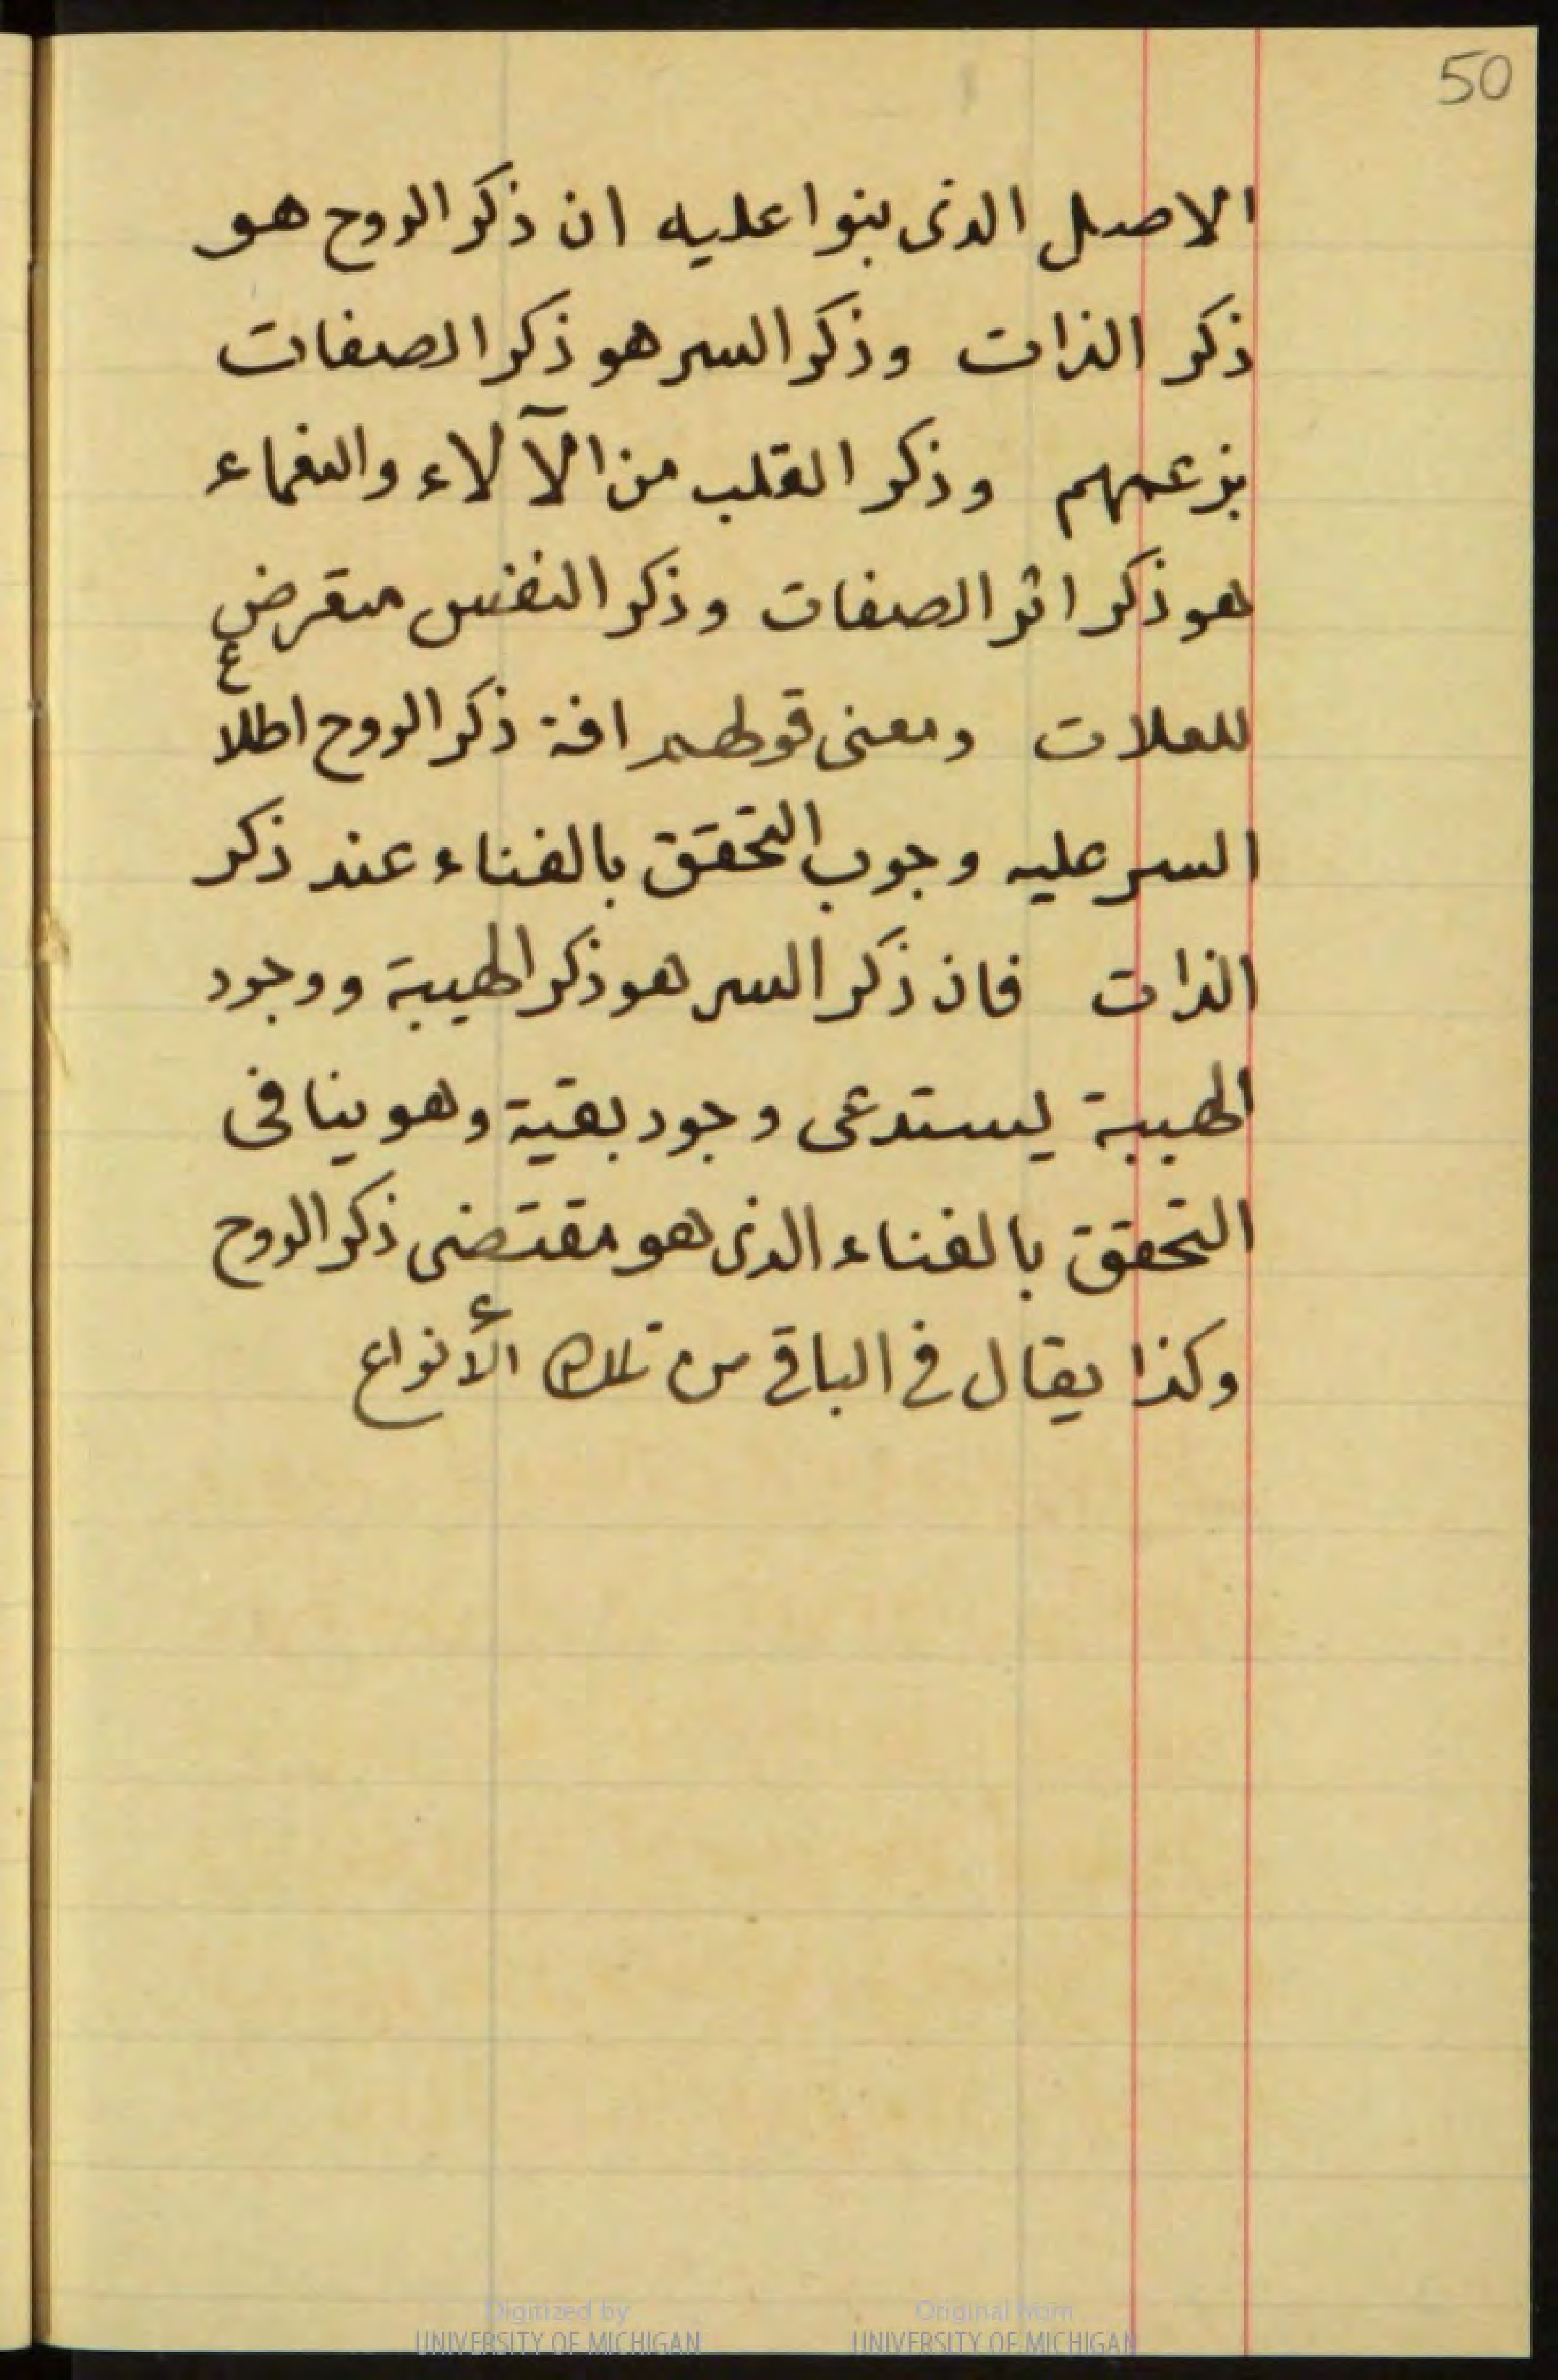 50
الاصل الذى بنوا عليه ان ذكر الروح هو
ذكر الذات وذكر السر هو ذكر الصفات
بزعمهم وذكر القلب من الآلاء والنعماء
هو ذكر اثر الصفات وذكر النفس متعرض
للعلات ومعنى قولهم افة ذكر الروح اطلاع
السر عليه وجوب التحقق بالفناء عند ذكر
الذات فان ذكر السر هو ذكر الهيبة ووجود
الهيبة يستدعى وجود بقية وهو ينافى
التحقق بالفناء الذى هو مقتضى ذكر الروح
وكذا يقال فى الباقى من تلك الأنواع
Digitized by
UNIVERSITY OF MICHIGAN
Original from
UNIVERSITY OF MICHIGAN